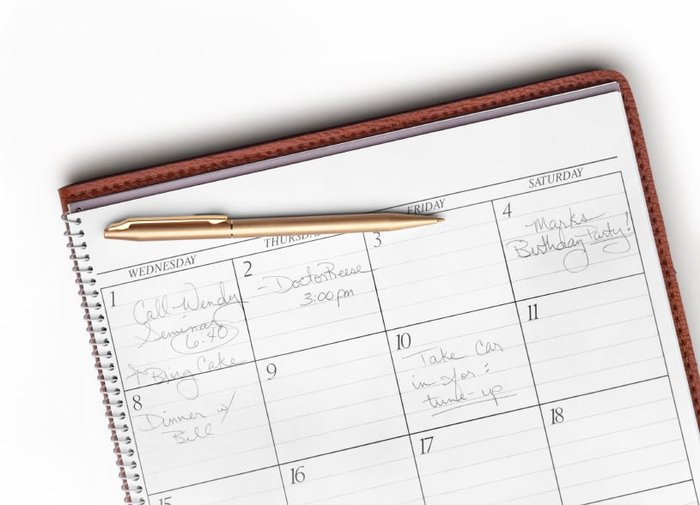 WEDNESDAY THURSDAY FRIDAY SATURDAY
1
Call Wendy
Seminar
6:40
* Bring Cake
2
- Doctor Reese
3:00pm
3
4
Marks
Birthday Party!
8
Dinner w/
Bill
9
10
Take Car
in for :
tune-up
11
15
16
17
18